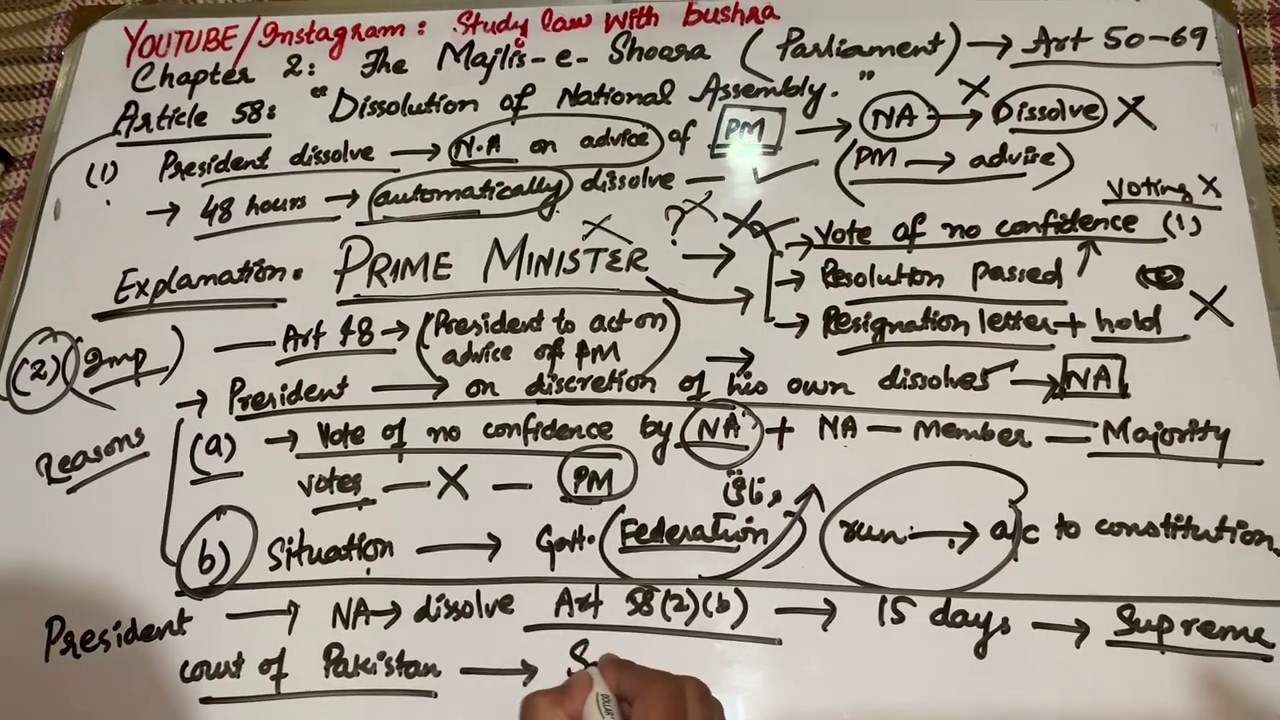 YOUTUBE/Instagram: Study law with bushra
Chapter 2: The Majlis-e-Shoora (Parliament) → Art 50-69
Article 58: "Dissolution of National Assembly."
(1) President dissolve → N.A on advice of PM → NA → Dissolve X
(PM → advise)
→ 48 hours → automatically dissolve – ✓
Voting X
Explanation: PRIME MINISTER →
→ Vote of no confidence (1)
→ Resolution passed ↑
→ Resignation letter + hold X
(2) (Imp) — Art 48 → (President to act on
advice of PM
→ President → on discretion of his own dissolves → NA
Reasons
(a) → Vote of no confidence by NA + NA — Member — Majority
votes — X — PM
وفاق
b) Situation → Govt. (Federation) run → a/c to constitution
President → NA → dissolve Art 58(2)(b) → 15 days → Supreme
court of Pakistan → S
DOLLAR